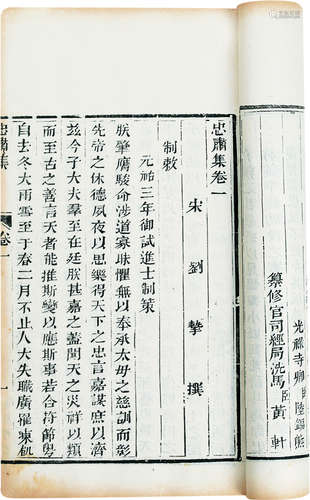 光祿寺卿臣陸錫熊
纂修官司經局洗馬臣黃軒
忠肅集卷一
宋 劉摯 撰
制敕
元祐三年御試進士制策
朕肇膺駿命涉道寡昧懼無以奉承太母之慈訓而彰
先帝之休德夙夜以思樂得天下之忠言嘉謀庶以濟
茲今子大夫羣至在廷朕甚嘉之蓋聞天之災祥以類
而至古之善言天者能推斯變以應斯事若合符節粵
自去冬大雨雪至于春二月不止人大失職廣罹凍飢
忠肅集
卷一
一